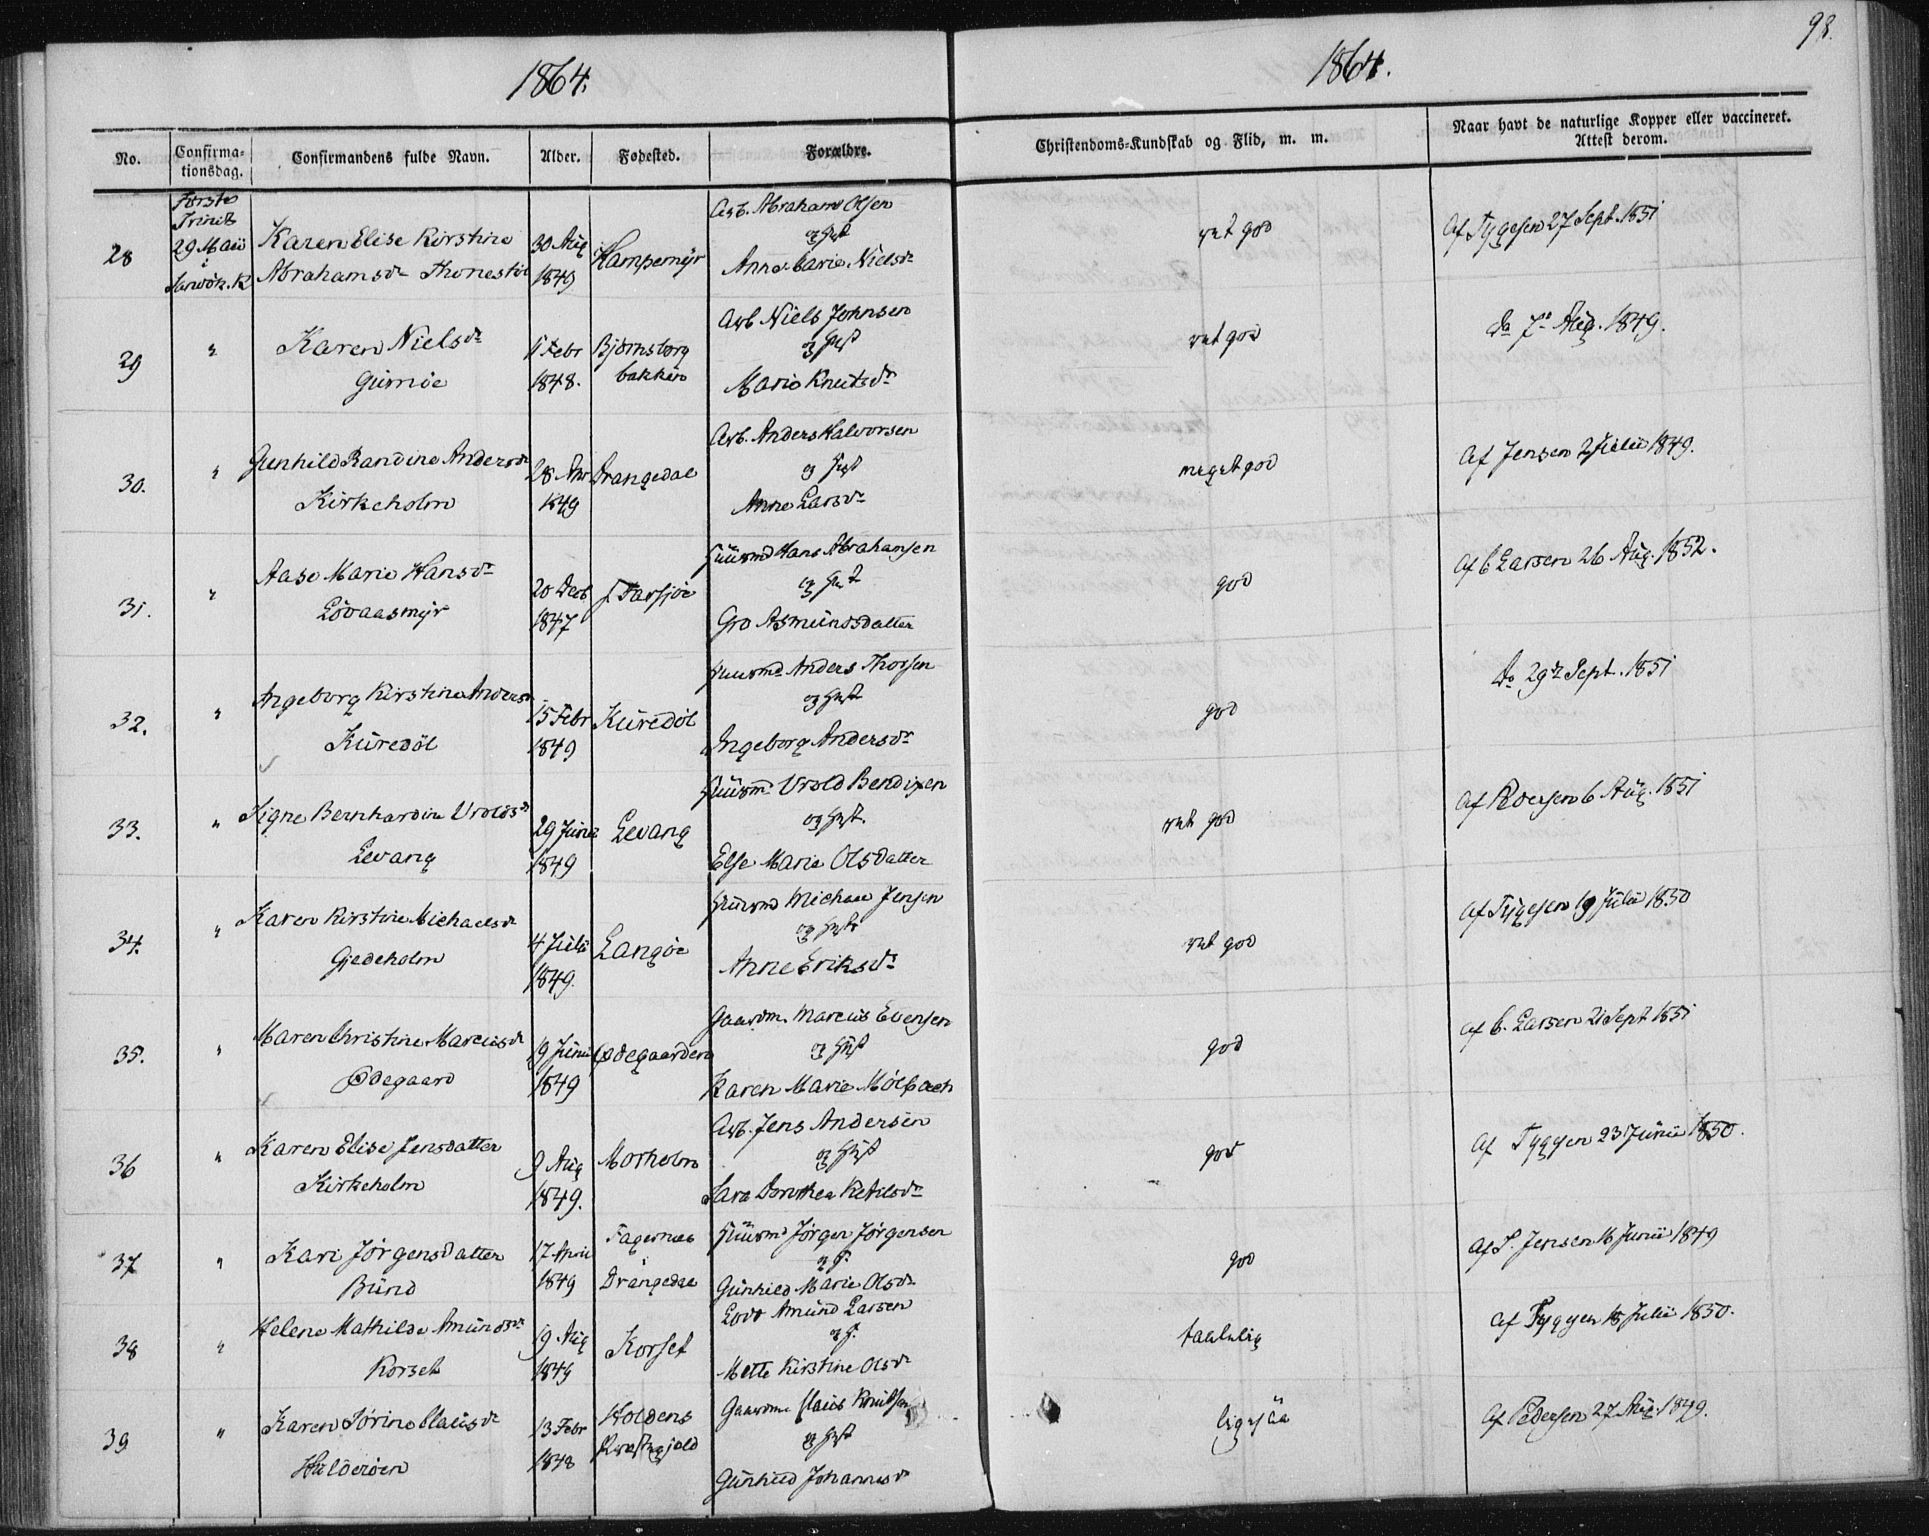 98.
1864.
1864.
No.
Confirma-
tionsdag.
Confirmandens fulde Navn.
Alder.
Fødested.
Forældre.
Christendoms-Kundskab og Flid, m. m.
Naar havt de naturlige Kopper eller vaccineret.
Attest derom.
Første
Trinit
29 Maii
i
28
Karen Elise Kirstine
Abrahamsdr
30 Aug
1849
Hampemyr
Arb. Abraham Olsen
og Hust
Anne Marie Nielsdr
ret god
Af Tygesen 27 Sept. 1851
29
"
Karen Nielsdr
Gumøe
Febr
1848.
Bjørnsborg
bakken
Arb Niels Johnsen
og Hust
Marie Knutsdr
ret god
do 7 Aug. 1849.
30.
"
Gunhild Randine Andersdr
Kirkeholm
28
1849
Drangedal
Arb. Anders Halvorsen
og Hust
Anne Larsdr
meget god
Af Jensen 2 Julii 1849.
31.
"
Aase Marie Hansdr
Lövaasmyr
20 Decb
1847
Farsjøe
Huusmd Hans Abrahamsen
og Hust
Gro Asmundsdatter
god
Af C Larsen 26 Aug. 1852.
32.
"
Ingeborg Kirstine Andersdr
Kuredöl
15 Febr
1849
Kuredöl
Huusmd Anders Thorsen
og Hust
Ingeborg Andersdr
god
Do 29 Sept. 1851
33.
"
Signe Bernhardine Vroldsdr
Levang
29 Junii
1849
Levang
Huusmd Vrold Bendixen
og Hust.
Else Marie Olsdatter
ret god
Af Pedersen 6 Aug. 1851
34.
"
Karen Kirstine Michaelsdr
Gjedeholm
4 Julii
1849.
Langøe
Huusmd Michael Jensen
og Hust
Anne Eriksdr
ret god
Af Tygesen 19 Julii 1850
35.
"
Maren Christine Marcusdr
Ødegaard
19 Junii
1849
Ødegaarden
Gaardm. Marcus Evensen
og Hust
Karen Marie Mölbach
god
Af C. Larsen 21 Sept 1851
36
"
Karen Elise Jensdatter
Kirkeholm
9 Aug
1849.
Morholm
Arb. Jens Andersen
og Hust
Sara Dorothea Ketilsdr
god
Af Tygesen 23 Junii 1850.
37
"
Kari Jørgensdatter
Bund
17 April
1849
Fagernes
Drangedal
Huusmd Jørgen Jørgensen
og H.
Gunhild Marie Olsdr
god
Af S. Jensen 16 Junii 1849
38
"
Helene Mathilde Amundsdr
Korset
19 Aug
1849
Korset
Lods Amund Larsen
og H.
Mette Kirstine Olsdr
taalelig
Af Tygesen 18 Julii 1850.
39
"
Karen Sørine Clausdr
13 Febr
1848
Holdens
Præstegjæld
Gaardm. Claus Knudsen
og Hust
Gunhild Johannesdr
ligesaa
Af Pedersen 27 Aug. 1849.